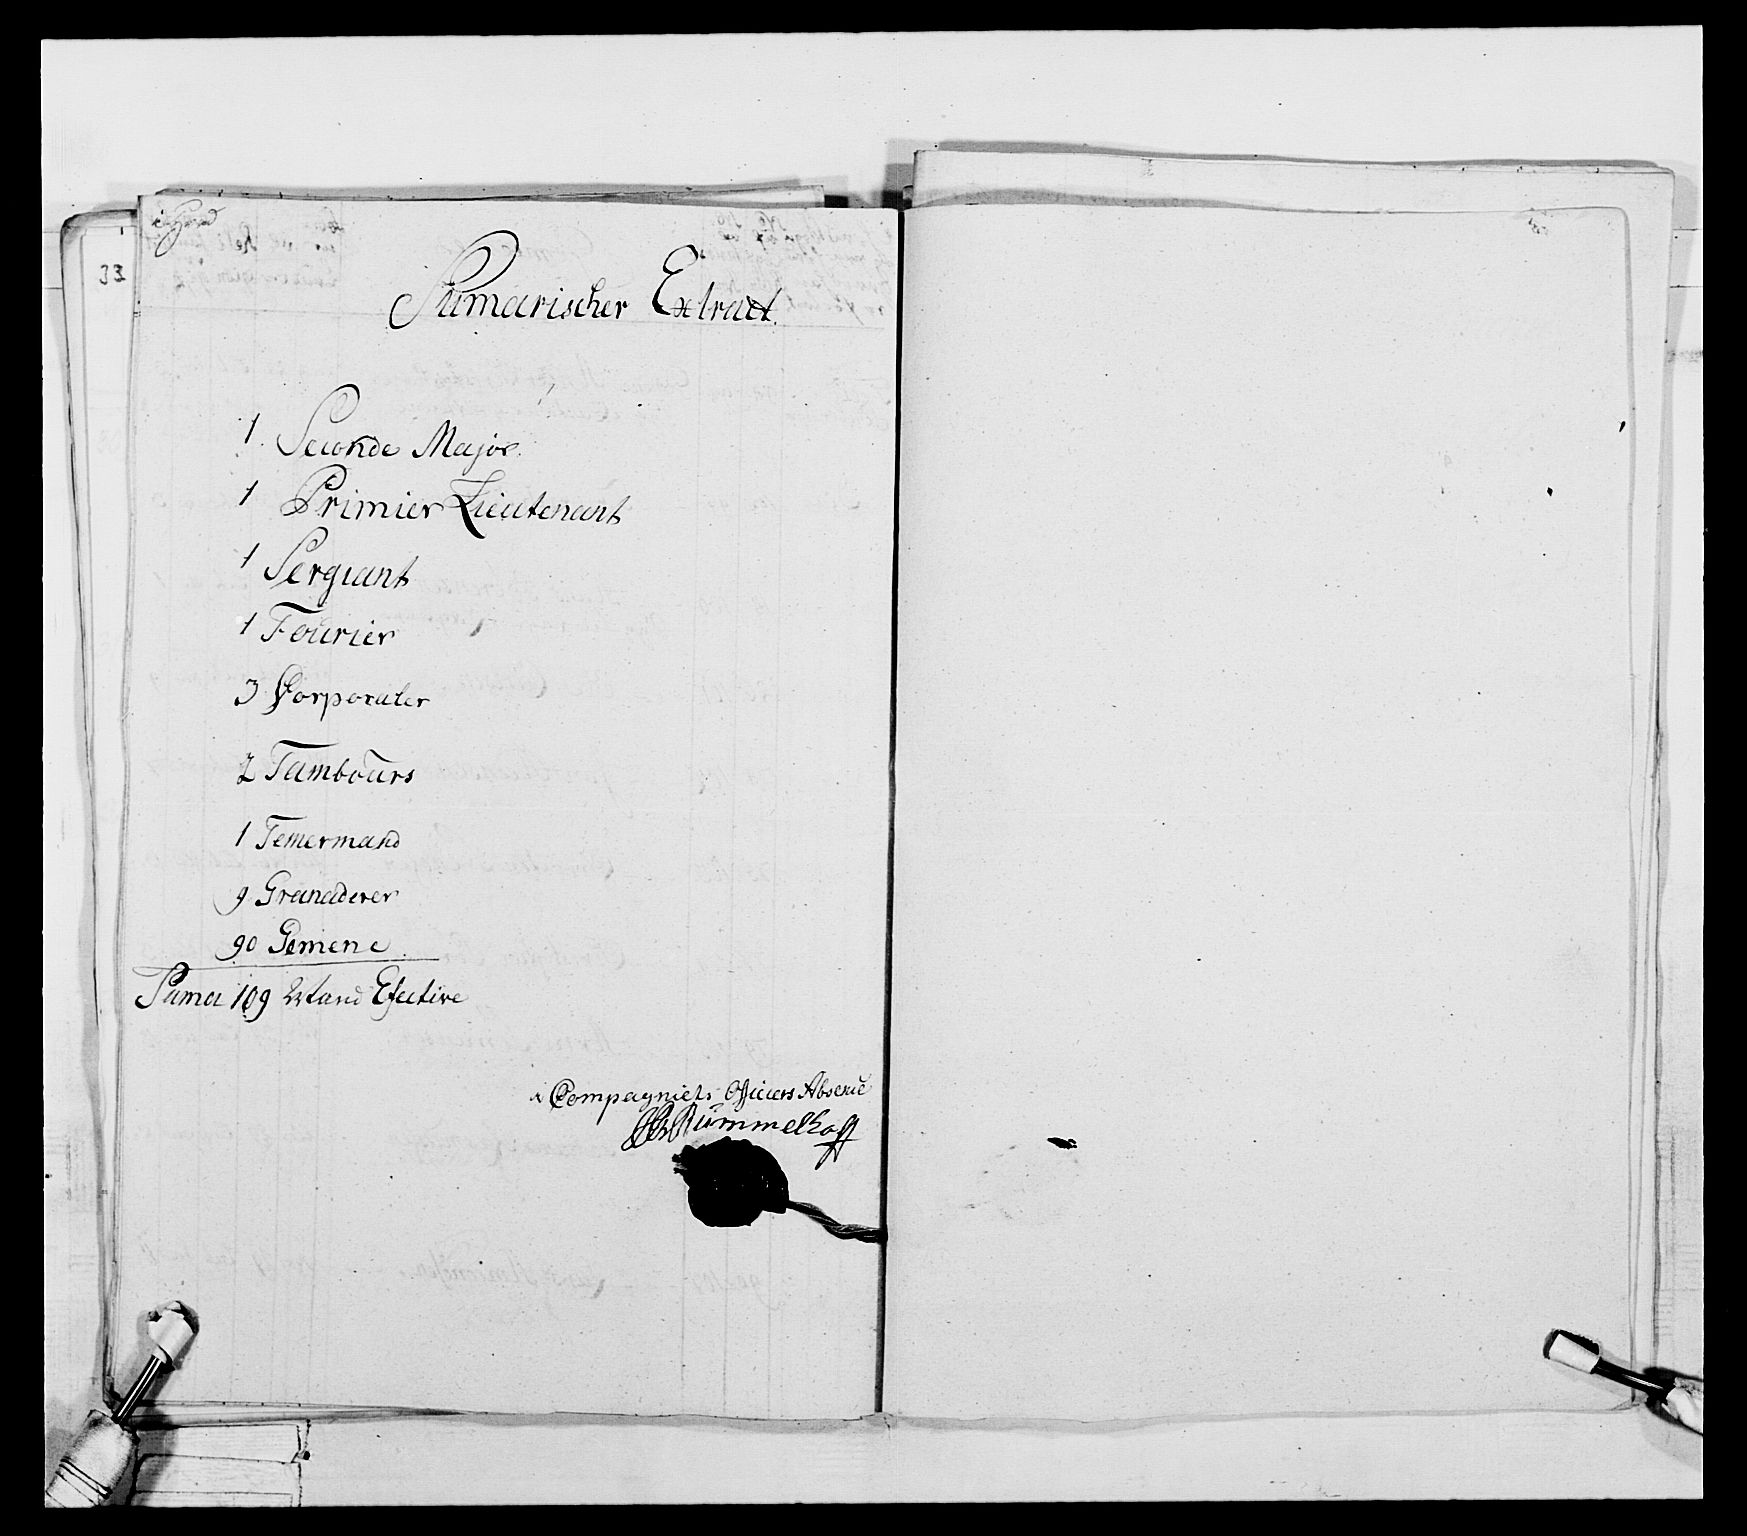 33
Sumarischer Extract.
1. Seconde Major.
1 Primier Lieutenant
1 Sergiant
1 Fourier
3 Corporaler
2 Tambours
1 Temermand
9 Granaderer
90 Gemene
Suma 109 Mand Efective
Compagniets Officiers Absence
Rummelhoff